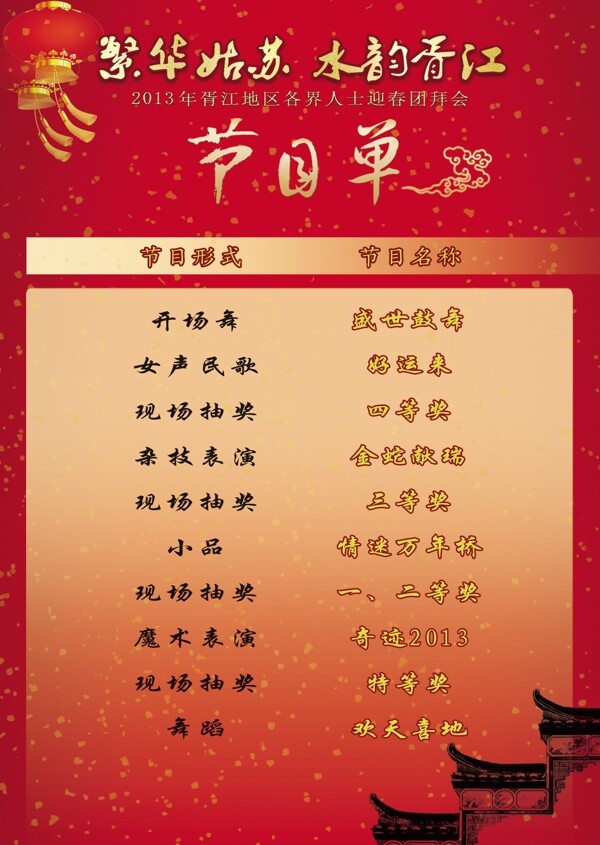 繁华姑苏 水韵胥江
2013年胥江地区各界人士迎春团拜会
节目单
节目形式 节目名称
开场舞 盛世鼓舞
女声民歌 好运来
现场抽奖 四等奖
杂技表演 金蛇献瑞
现场抽奖 三等奖
小品 情迷万年桥
现场抽奖 一、二等奖
魔术表演 奇迹2013
现场抽奖 特等奖
舞蹈 欢天喜地